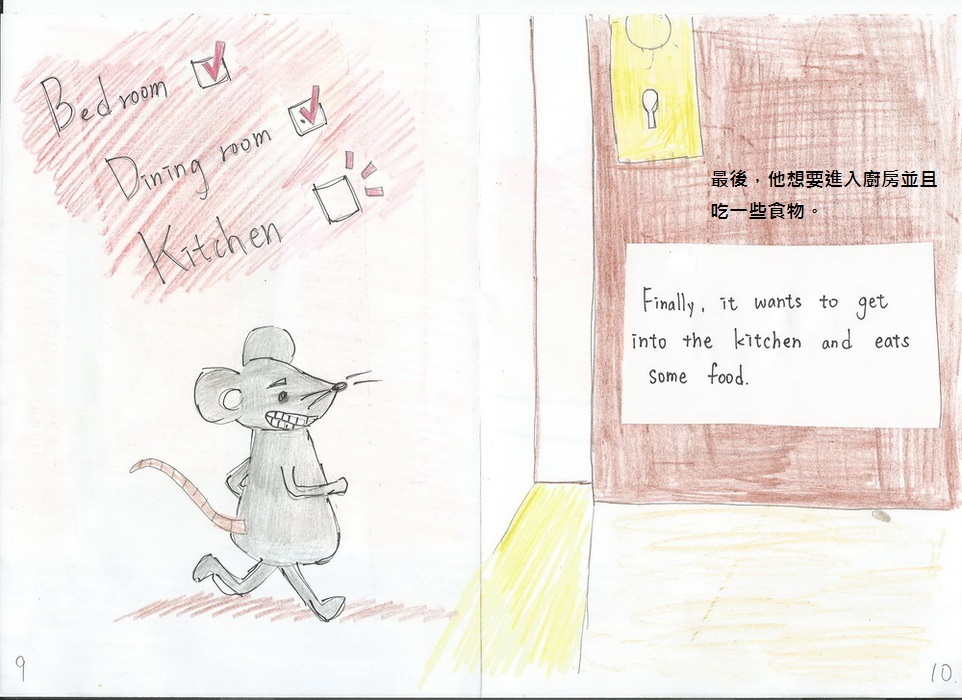 Bedroom
Dining room
Kitchen
9
最後，他想要進入廚房並且
吃一些食物。
Finally, it wants to get
into the kitchen and eats
some food.
10